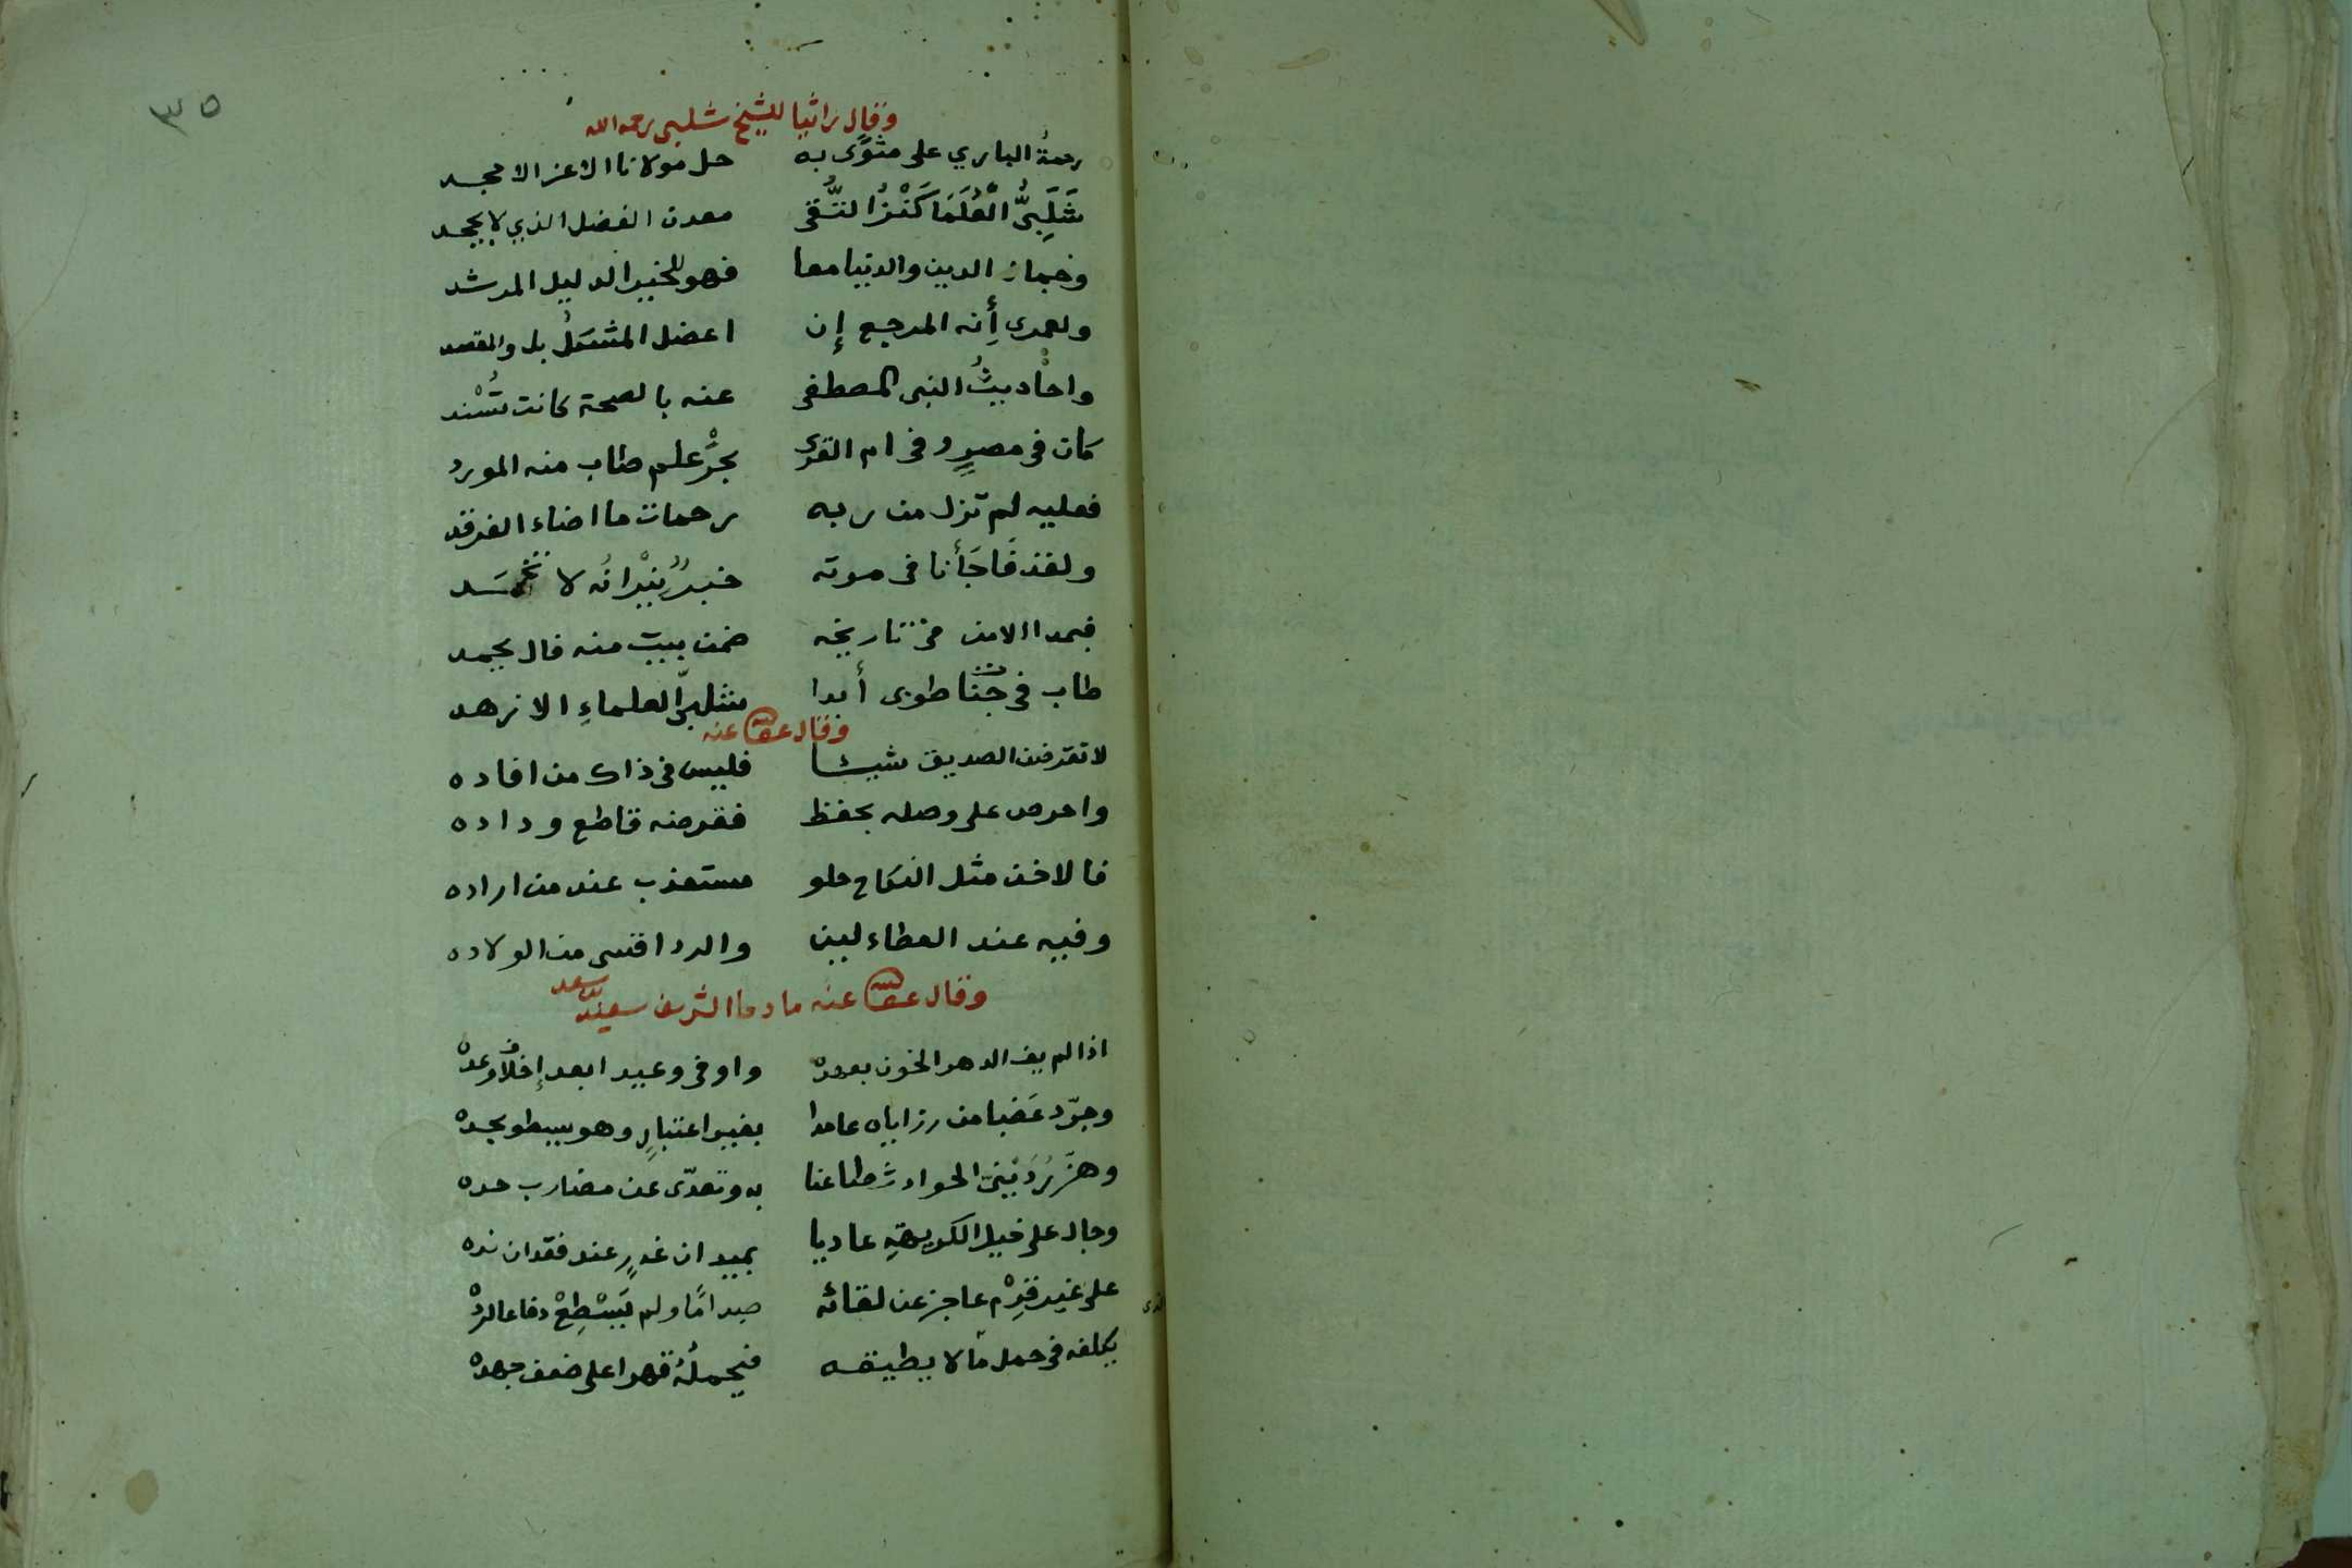 ٣٥
وقال راثيا للشيخ شلبى رحمه الله
رحمةُ الباري على مثوًى به حل مولانا الاعز الامجد
شَلَبِىُّ الْعُلَمَا كَنْزُ التُّقى معدن الفضل الذي لا يجحد
وخباز الدين والدنيا معا فهو للخير الدليل المرشد
ولعمرى أنه المرجع إن اعضل المشكلُ بل والمقصد
واحاديثُ النبى المصطفى عنه بالصحة كانت تُسْند
كان فى مصرٍ وفى ام القرى بحْرُ علم طاب منه المورد
فعليه لم تزل من ربه رحمات ما اضاء الفرقد
ولقد فَاجَأنا فى موته خبرٌ نِيْرانُه لا تخمد
فبدا الامن فى تاريخه ضمن بيت منه فال يحمد
طاب فى جنات طوبى أبدا شلبىّ العلماءِ الازهد
وقال عفا الله عنه
لا تقرضن الصديق شيئا فليس فى ذاك من افاده
واحرص على وصله بحفظ فقرضه قاطع وداده
فالاخذ مثل النكاح حلو مستعذب عند من اراده
وفيه عند العطاء لين والرد اقسى من الولاده
وقال عفا الله عنه مادحا الشريف سعيد بن سعد
اذا لم يف الدهر الخون بعهده واوفى وعيدا بعد إخلاف وعده
وجرّد عَضبا من رزاياه عامدا بغير اعتبارٍ وهو يسطو بحده
وهزّ رُدَيْنىّ الحوادث طاعنا به وتعدّى عن مضارب حده
وجال على خيل الكريهةِ عاديا بميدان غدرٍ عند فقدان نده
على غير قِرْم عاجز عن لقائه صدامًا ولم يَسْطِعْ دفاعا لردّه
يكلفه فى حمل ما لا يطيقه فيحملُهُ قهرا على ضعف جهده